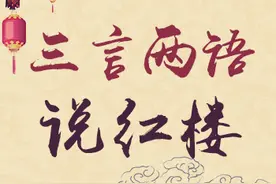 三言两语
说红楼